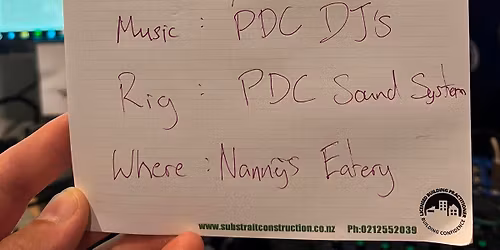 Music : PDC DJ's
Rig : PDC Sound System
Where : Nanny's Eatery
LICENSED BUILDING PRACTITIONER
BUILDING CONFIDENCE
www.substraitconstruction.co.nz Ph:0212552039